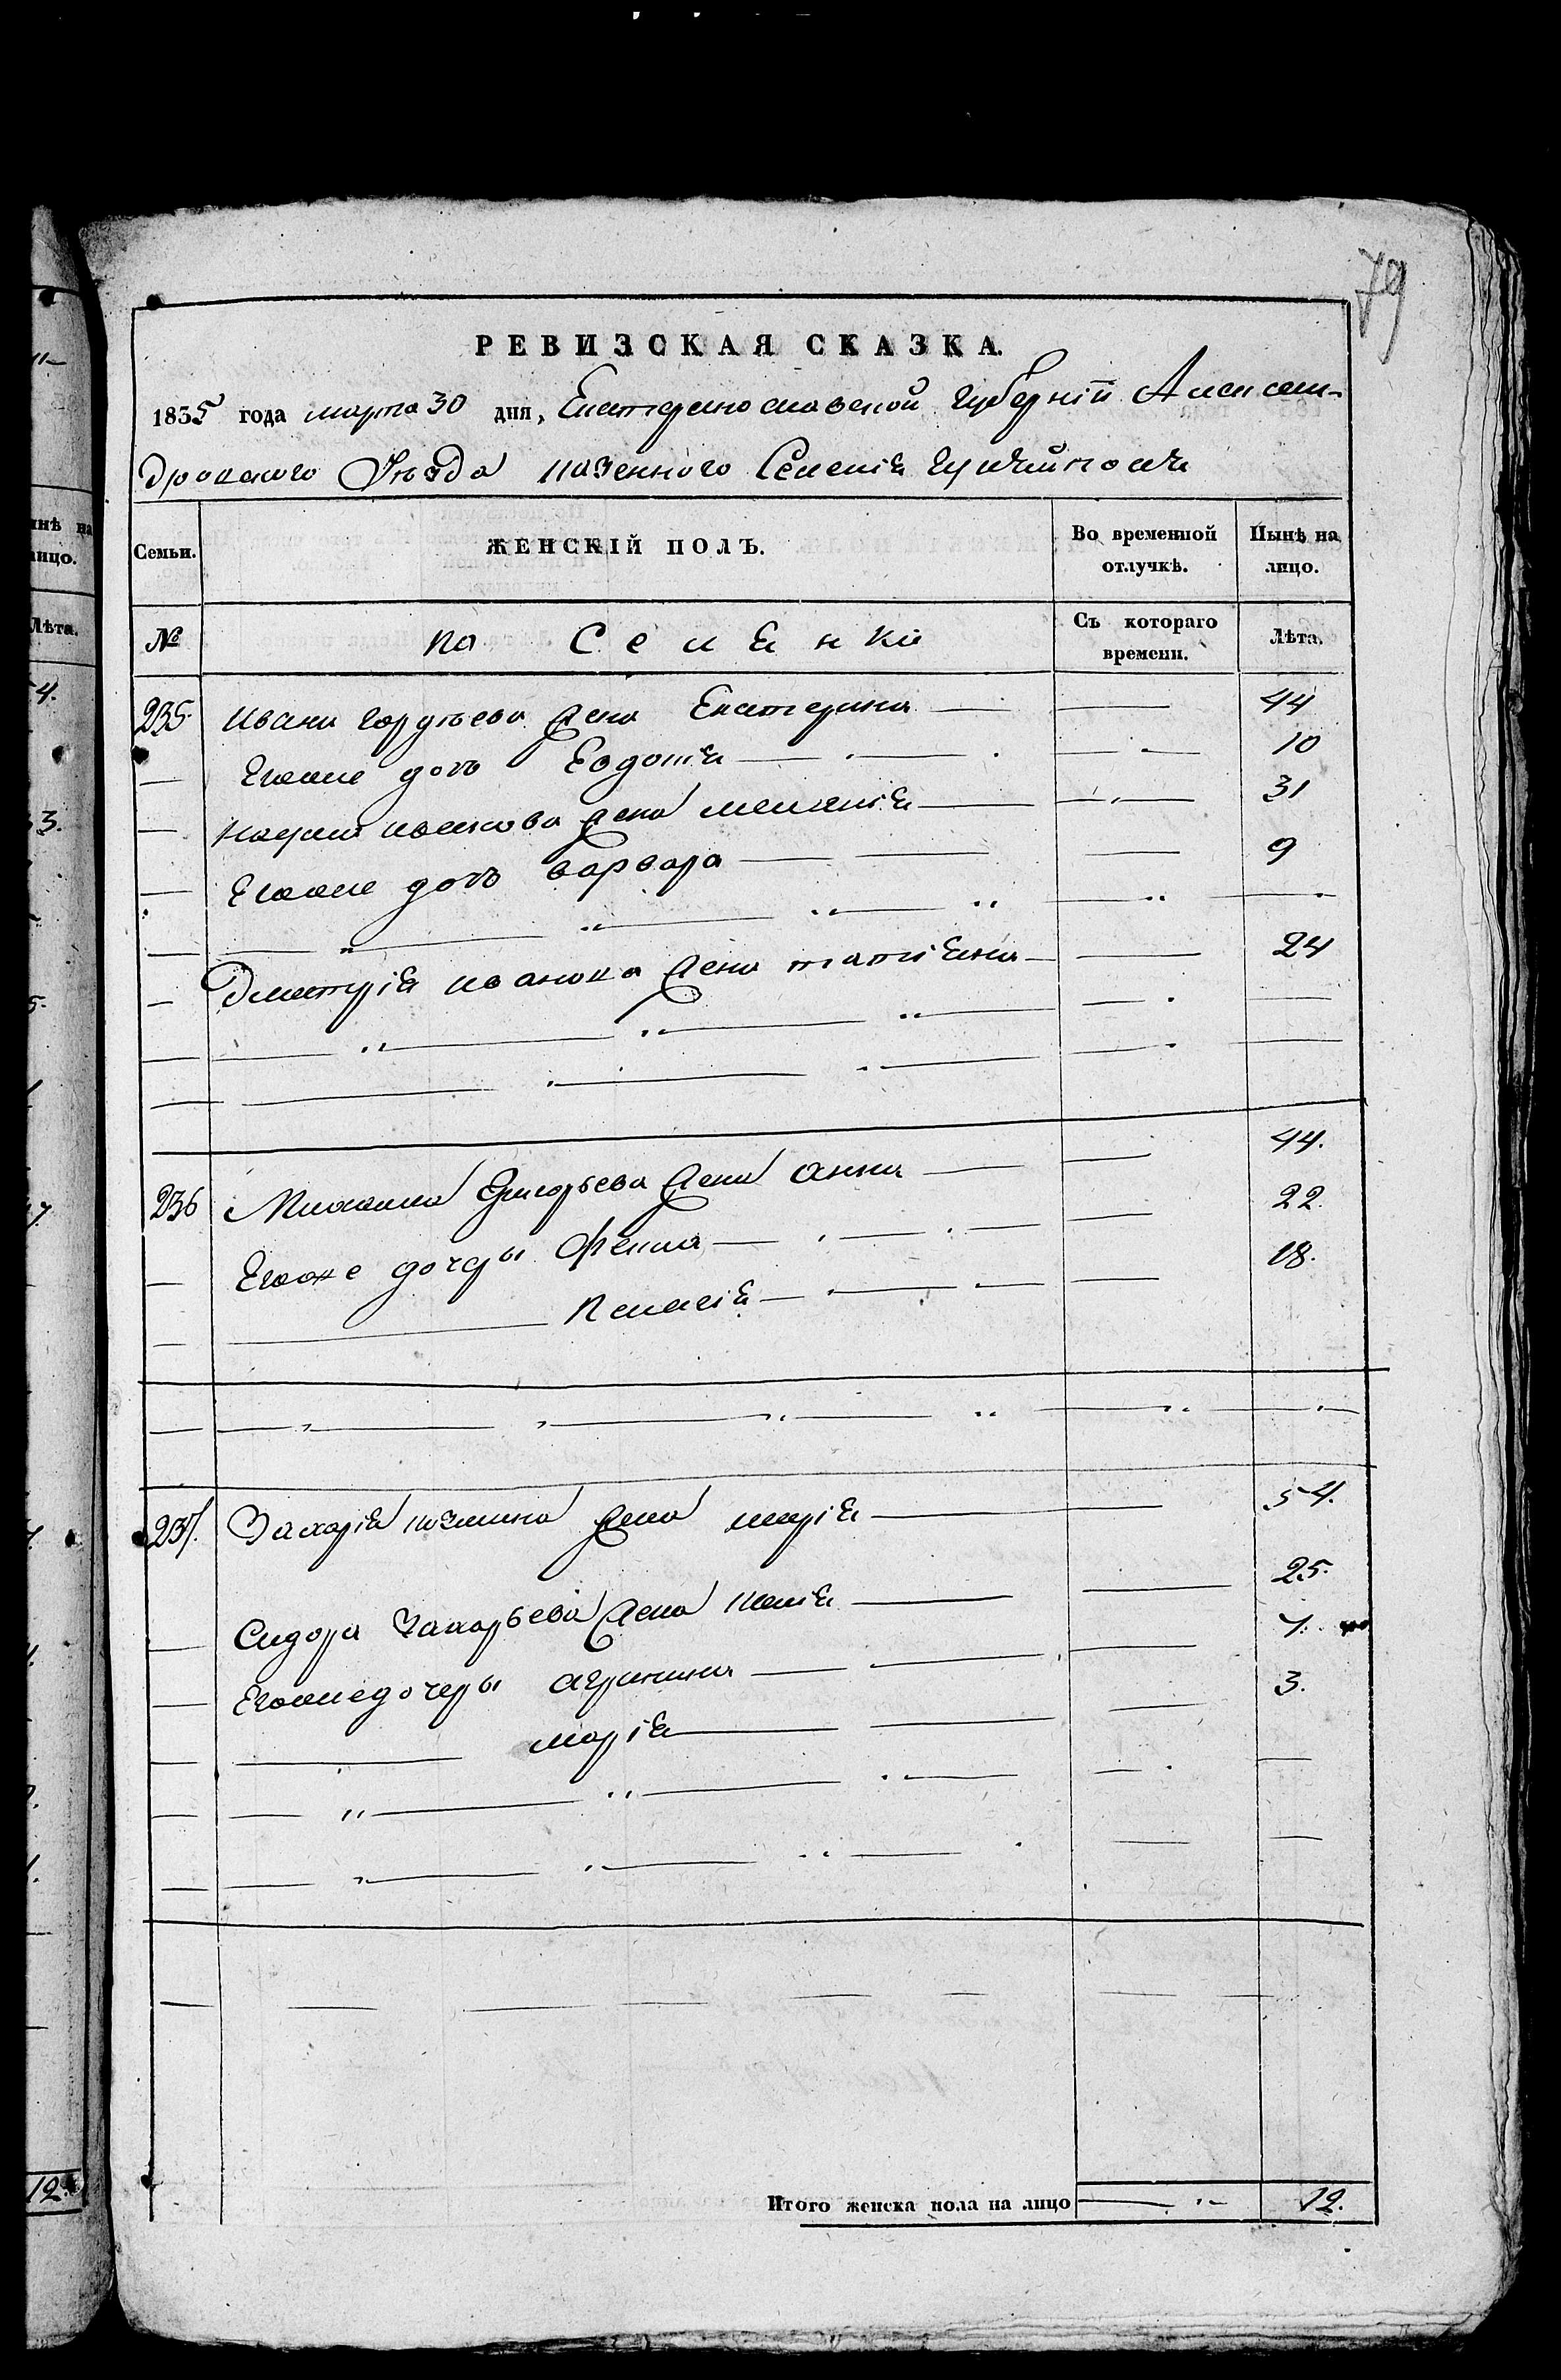 79
РЕВИЗСКАЯ СКАЗКА.
1835 года марта 30 дня, Екатеринославской губернїи Алексан-
дровского Уезда казенного Селенія гуляйполя
Семьи. ЖЕНСКІЙ ПОЛЪ. Во временной отлучкѣ. Нынѣ на лицо.
№ Съ котораго времени. Лѣта.
235. Ивана гордѣева жена Екатерина 44
Егоже дочь Евдокія 10
жена меланія 31
Егоже дочь варвара 9
Дмитрія иванова жена татіяна 24
236 Михаила Григорьева жена анна 44.
Егоже дочеры Фекла 22.
Пелагія 18.
237. Захарія козмина жена марія 54.
Сидора Захарьева жена 25.
Егоже дочеры агрипина 7.
марія 3.
Итого женска пола на лицо 12.
12